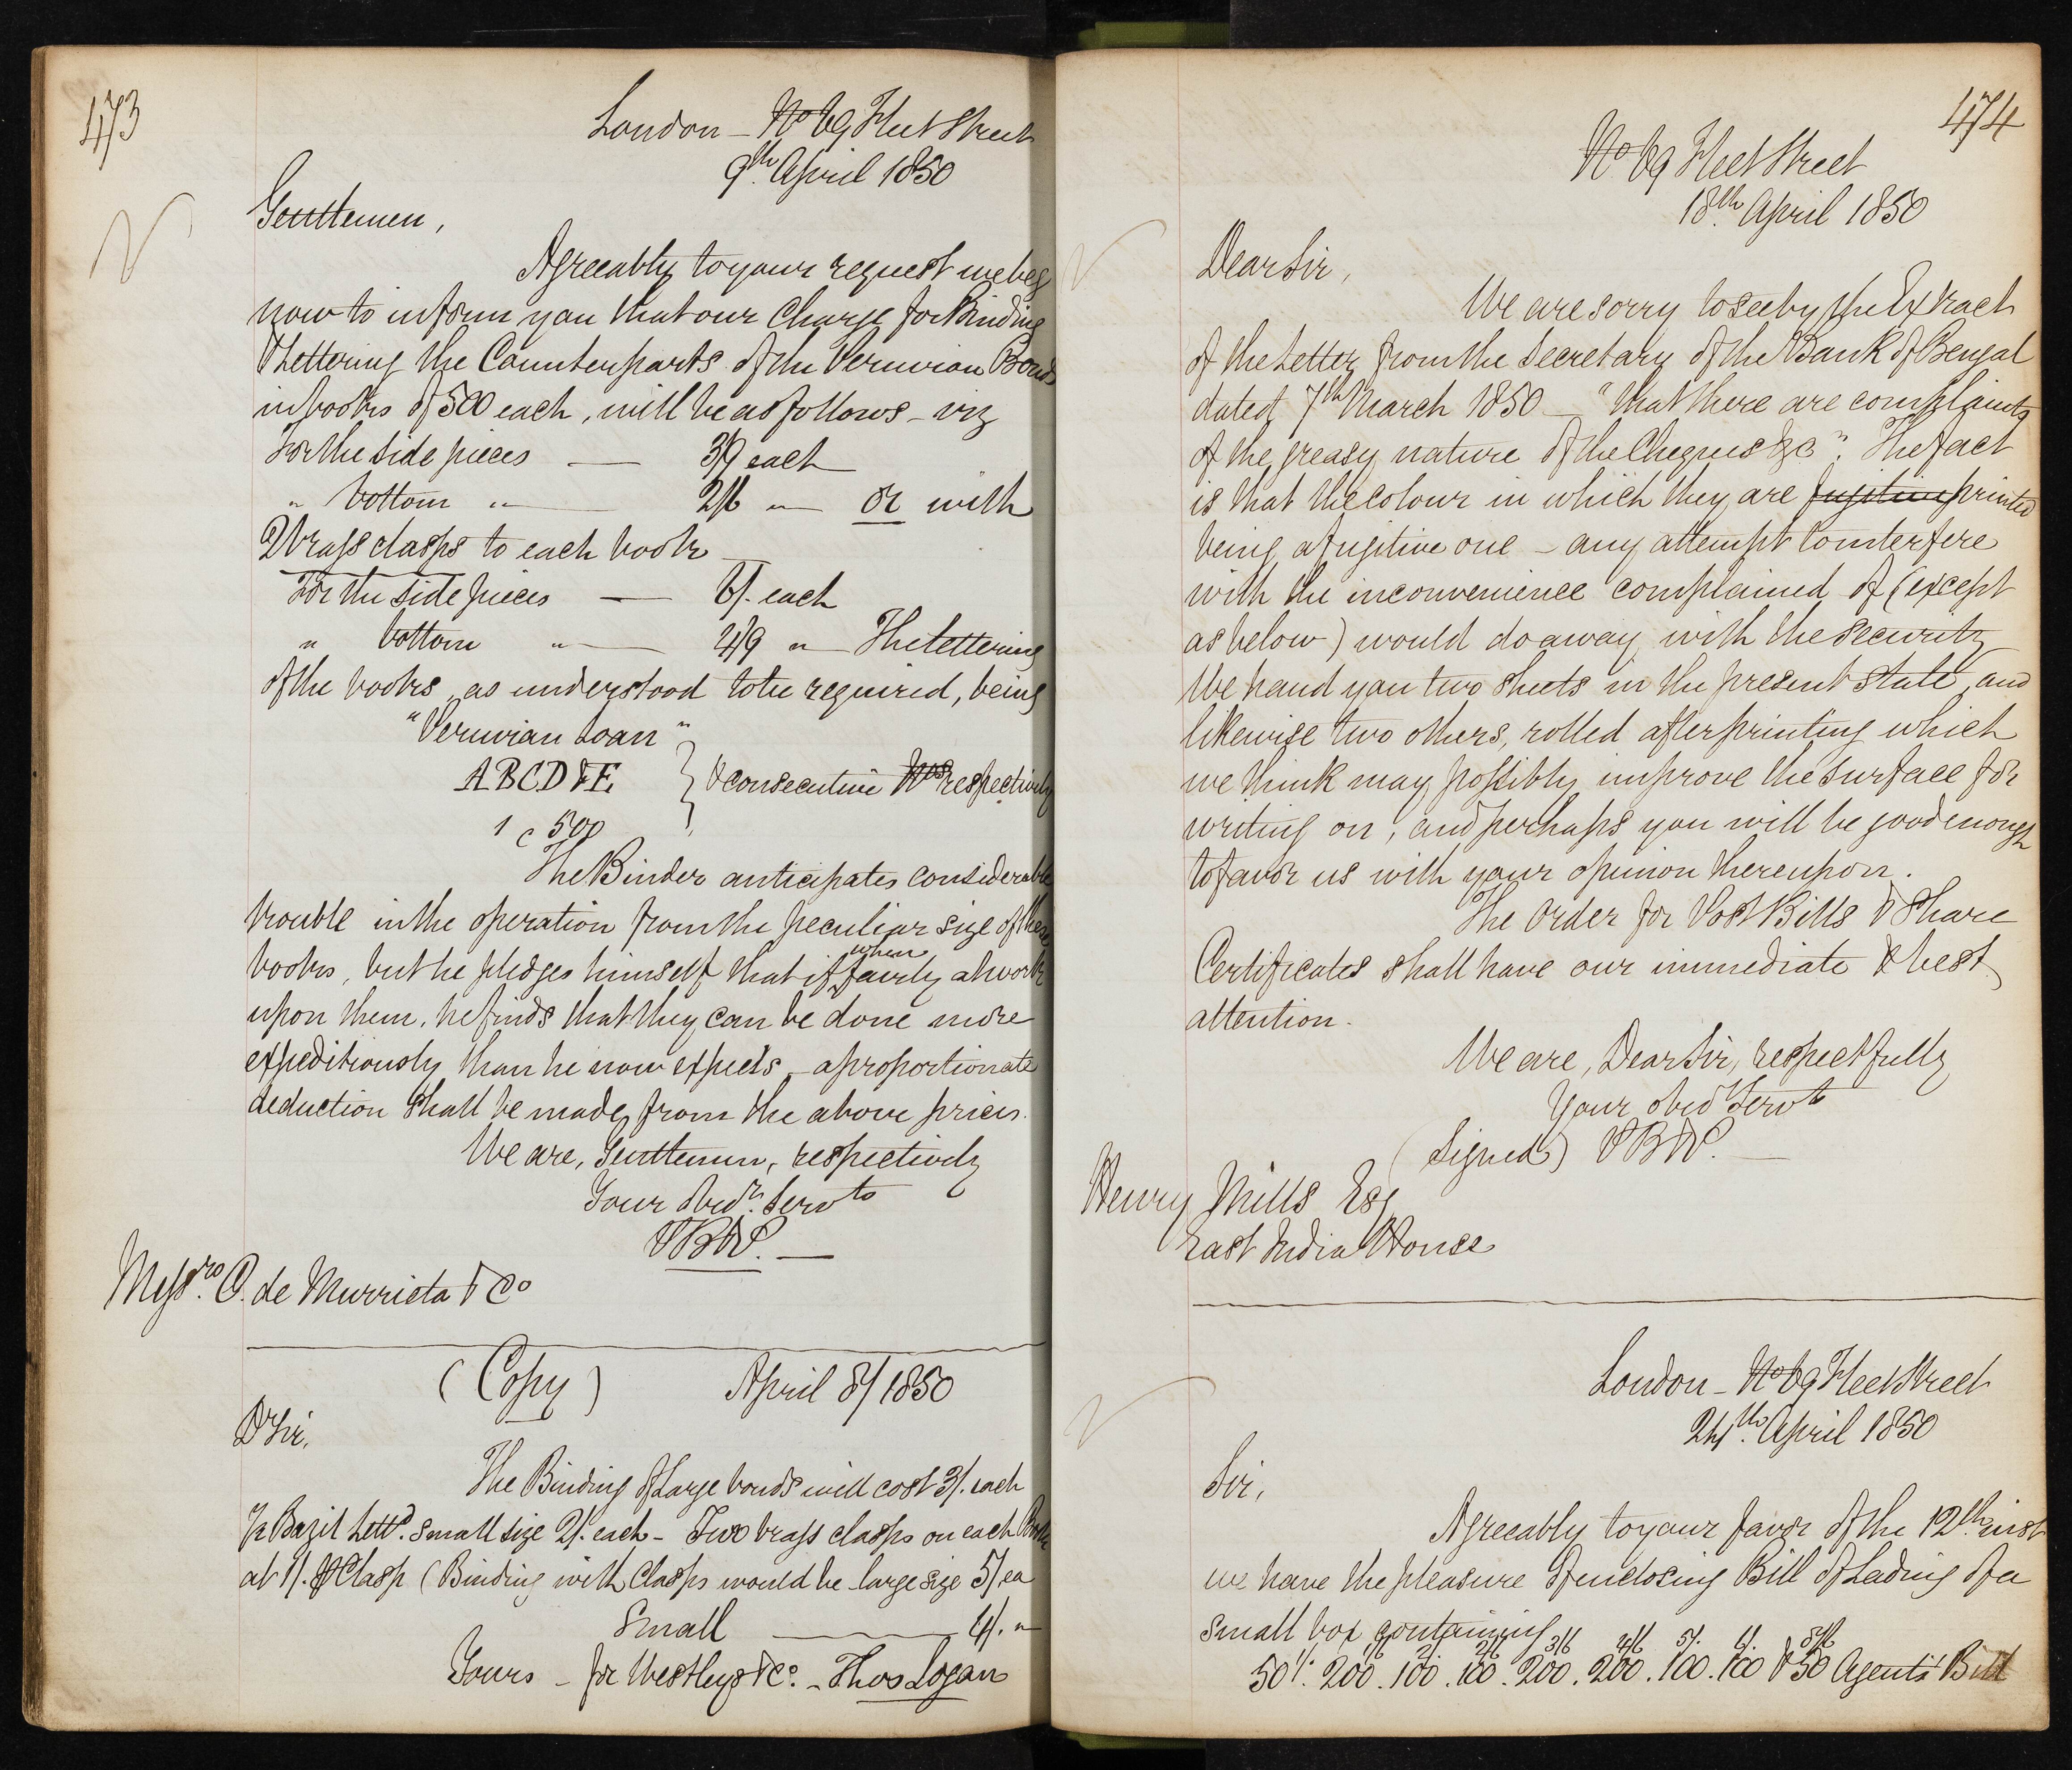 473
London - No 69 Fleet Street
9th. April 1850
Gentlemen,
Agreeably to your request we beg
now to inform you that our Charge for Binding
& Lettering the Counterparts of the Peruvian Bonds
in books of 500 each, will be as follows - viz
For the side pieces — 3/9 each
" bottom " — 2/6 " — or with
2 brass clasps to each book —
For the side pieces — 6/. each
" bottom " — 4/9 " — The lettering
of the books, as understood to be required, being
"Peruvian Loan"
A B C D & E } & consecutive Nos respectively
1 @ 500
The Binder anticipates considerable
trouble in the operation from the peculiar size of these
books, but he pledges himself that if, when fairly at work
upon them, he finds that they can be done more
expeditiously than he now expects - a proportionate
deduction shall be made from the above prices.
We are, Gentlemen, respectively
Your Obedt. Servts
PB&P. —
Messrs. C. de Murrieta & Co
(Copy) April 8/1850
Dr Sir,
The Binding of Large bonds will cost 3/. each
½ Bazil Lettd. small size 2/. each - Two brass clasps on each Book
at 1/. ℔ Clasp (Binding with Clasps would be large size 5/. ea
Small — 4/. "
Yours - for Westleys & Co. - Thos Logan
474
No 69 Fleet Street
18th. April 1850
Dear Sir,
We are sorry to see by the Extract
of the Letter from the Secretary of the Bank of Bengal
dated 7th March 1850 — "that there are complaints
of the greasy nature of the Cheques &c". The fact
is that the colour in which they are fugitive printed
being a fugitive one - any attempt to interfere
with the inconvenience complained of (except
as below) would do away with the security
We hand you two sheets in the present state, and
likewise two others, rolled after printing which
we think may possibly improve the surface for
writing on, and perhaps you will be good enough
to favor us with your opinion thereupon.
The Order for Post Bills & Share
Certificates shall have our immediate & best
attention.
We are, Dear Sir, respectfully
Your obed Servts
(Signed) PB&P. —
Henry Mills Esq
East India House
London - No 69 Fleet Street
24th. April 1850
Sir,
Agreeably to your favor of the 12th. inst
we have the pleasure of enclosing Bill of Lading of a
small box containing
50 . 200 . 100 . 100 . 200 . 200 . 100 . 100 & 50 Agents' Bill